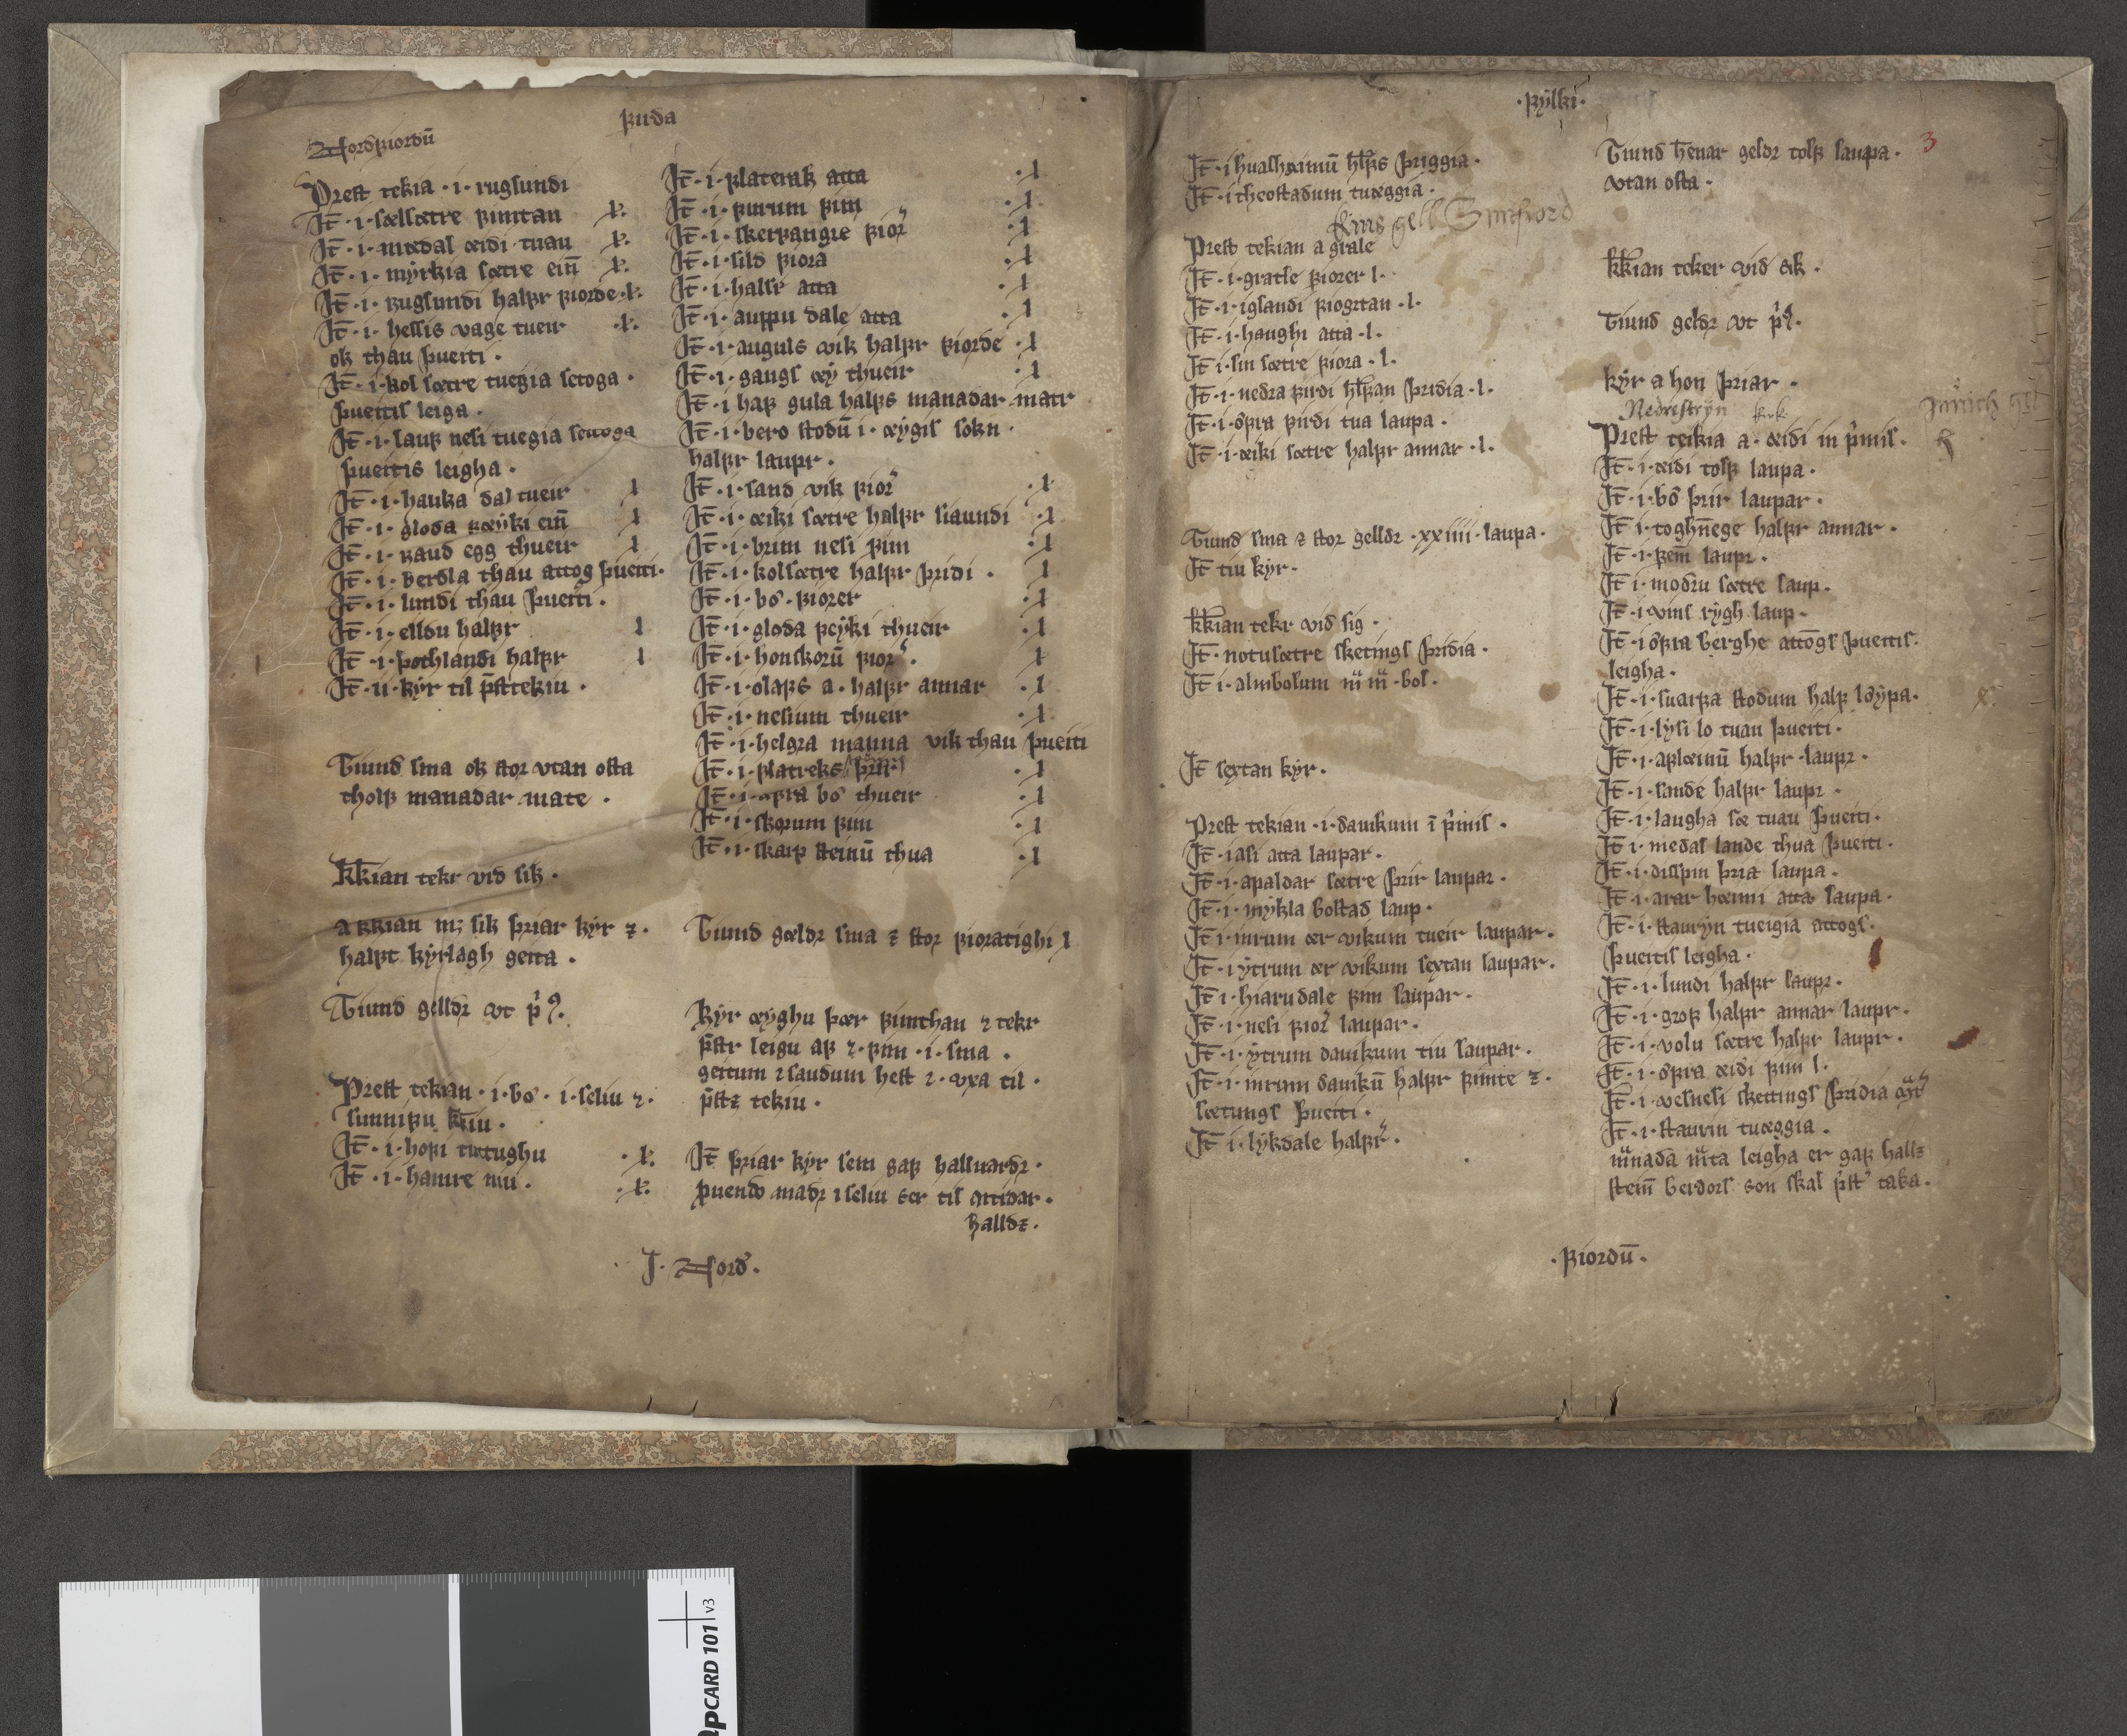 ꝼirða
Nordꝼiordū
Prest tekia · i · ruglundi
Jt̄ · i · sælsætre ꝼimtan ł.
Jt̄ · i · mædal æidi tuau ł.
Jt̄ · i · myrkia sætre ein̄ ł.
Jt̄ · i · ruglundi halꝼr ꝼiorde ł.
Jt̄ · i · hellis vage tueir ·ł.
ok thau þueiti ·
Jt̄ · i · kol sætre tuegia settoga ·
þueitis leiga ·
Jt̄ · i · lauꝼ nesi tuegia settoga
þueitis leigha ·
Jt̄ · i · hauka dal tueir l
Jt̄ · i · gloda ꝼæyki ein̄ l
Jt̄ · i · raud egg thueir l
Jt̄ · i · berdla thau attog þueiti ·
Jt̄ · i · lundi thau þueiti ·
Jt̄ · i · elldu halꝼr l
Jt̄ · i · þothlandi halꝼr l
Jt̄ · ii · kyr til p̄sttekiu ·
Tiund sma ok stor vtan osta
tholꝼ manadar mate ·
kk̄ian tekr vid sik ·
a kkian mz sik þriar kyr ⁊ ·
halꝼt kyrlagh geita ·
Tiund gelldr vt p
Prest tekian · i · bo · i · seliu ⁊ ·
sunnipu k̄iu ·
Jt̄ · i · hoꝼi tuttughu · ł.
Jt̄ · i · hamre niu · · ł.
Jt̄ · i · ꝼlaterak atta · l
Jt̄ · i · ꝼurum ꝼim · l
Jt̄ · i · skerꝼangre ꝼior · l
Jt̄ · i · sild ꝼiora · l
Jt̄ · i · halsr atta · l
Jt̄ · i · auppu dale atta · l
Jt̄ · i · auguls vik halꝼr ꝼiorde · l
Jt̄ · i · gangs æy thueir · l
Jt̄ · i haꝼ gula halꝼs manadar matr
Jt̄ · i · bero stodū i · æygis sokn ·
halꝼr laupr ·
Jt̄ · i · sand vik ꝼior · l
Jt̄ · i · æiki sætre halꝼr siaundi · l
Jt̄ · i · brim nesi ꝼim · l
Jt̄ · i · kolsætre halꝼr þridi · l
Jt̄ · i · bo · ꝼiorer · l
Jt̄ · i · gloda ꝼeyki thueir · l
Jt̄ · i · honskorū ꝼior · l
Jt̄ · i · olaꝼs a · halꝼr annar · l
Jt̄ · i · nesium thueir · l
Jt̄ · i · helgra manna vik thau þueiti
Jt̄ · i · ꝼlatreks · l
Jt̄ · i · oꝼra bo thueir · l
Jt̄ · i · skorum ꝼim · l
Jt̄ · i · skarꝼ steinū thua · l
Tiund gældr sma ⁊ stor ꝼioratighi l
Kyr æyghu þær ꝼimthan ⁊ tekr
p̄str leigu aꝼ ⁊ · ꝼim · i · sma ·
geitum ⁊ saudum hest ⁊ · vxa til ·
p̄stz tekiu ·
Jt̄ þriar kyr sem gaꝼ halluardr ·
ꝼuendo madr i seliu ser til artidar ·
halldz ·
J · Nord ·
· ꝼylki ·
3
Jt̄ · i hualheimū hlꝼs þriggia ·
Jt̄ · i theostadum tuæggia ·
Prest tekian a giale
Jt̄ · i · gratle ꝼiorer l ·
Jt̄ · i · iglandi ꝼiogrtan · l ·
Jt̄ · i · haughi atta · l ·
Jt̄ · i · lin sætre ꝼiora · l ·
Jt̄ · i · nedra ꝼirdi hlꝼan þridia · l ·
Jt̄ · i · oꝼra ꝼirdi tua laupa ·
Jt̄ · i · æiki sætre halꝼr annar · l ·
Tiund sma ⁊ stor gelldr · xxiiii · laupa ·
Jt̄ tiu kyr ·
kk̄ian tekr vid sig ·
Jt̄ · notusætre skettings þridia ·
Jt̄ · i · almbolum · bol ·
Jt̄ sextan kyr ·
Prest tekian · i · dauikum ī p̄mis ·
Jt̄ · i asi atta laupar ·
Jt̄ · i · apaldar sætre þrir laupar ·
Jt̄ · i · mykla bolstad laup ·
Jt̄ · i · inrum ær vikum tueir laupar ·
Jt̄ · i ytrum ær vikum sextan laupar ·
Jt̄ · i · hiarudale ꝼim laupar ·
Jt̄ · i · nesi ꝼior laupar ·
Jt̄ · i · ytrum dauikum tiu laupar ·
Jt̄ · i · inrum dauikū halꝼr ꝼimte ⁊ ·
sætungs þueiti ·
Jt̄ · i · lykdale halꝼr ·
Tiund hēnar geldr tolꝼ laupa ·
vtan osta ·
kk̄ian teker vid sik ·
Tiund geldr vt p
kyr a hon þriar ·
Nedrestryn kirk
Prest teikia a · æidi in p̄mis ·
Jt̄ · i · æidi tolꝼ laupa ·
Jt̄ · i · bo þrir laupar ·
Jt̄ · i · toghn̄ege halꝼr annar ·
Jt̄ · i · ꝼem̄ laupr ·
Jt̄ · i · modru sætre laup ·
Jt̄ · i · vins rygh laup ·
Jt̄ · i oꝼra berghe attōgs þueitis ·
leigha ·
Jt̄ · i · suarꝼa stodum halꝼ lꝍypa ·
Jt̄ · i · lysi lo tuau þueiti ·
Jt̄ · i · aplæimū halꝼr laupr ·
Jt̄ · i · sande halꝼr laupr ·
Jt̄ · i · laugha sæ tuau þueiti ·
Jt̄ · i · medal lande thua þueiti ·
Jt̄ · i · dilspin þria laupa ·
Jt̄ · i · arar hæimi atta laupa ·
Jt̄ · i · stauryn tueigia attogs ·
þueitis leigha ·
Jt̄ · i · lundi halꝼr laupr ·
Jt̄ · i · groꝼ halꝼr annar laupr ·
Jt̄ · i · volu sætre halꝼr laupr ·
Jt̄ · i · oꝼra æidi ꝼim l ·
Jt̄ · i · vesnesi skettings þridia
Jt̄ · i · staurin tuæggia ·
m̄nada m̄ta leigha er gaꝼ hallz
stein̄ berdors son skal p̄st taka ·
· ꝼiordū ·